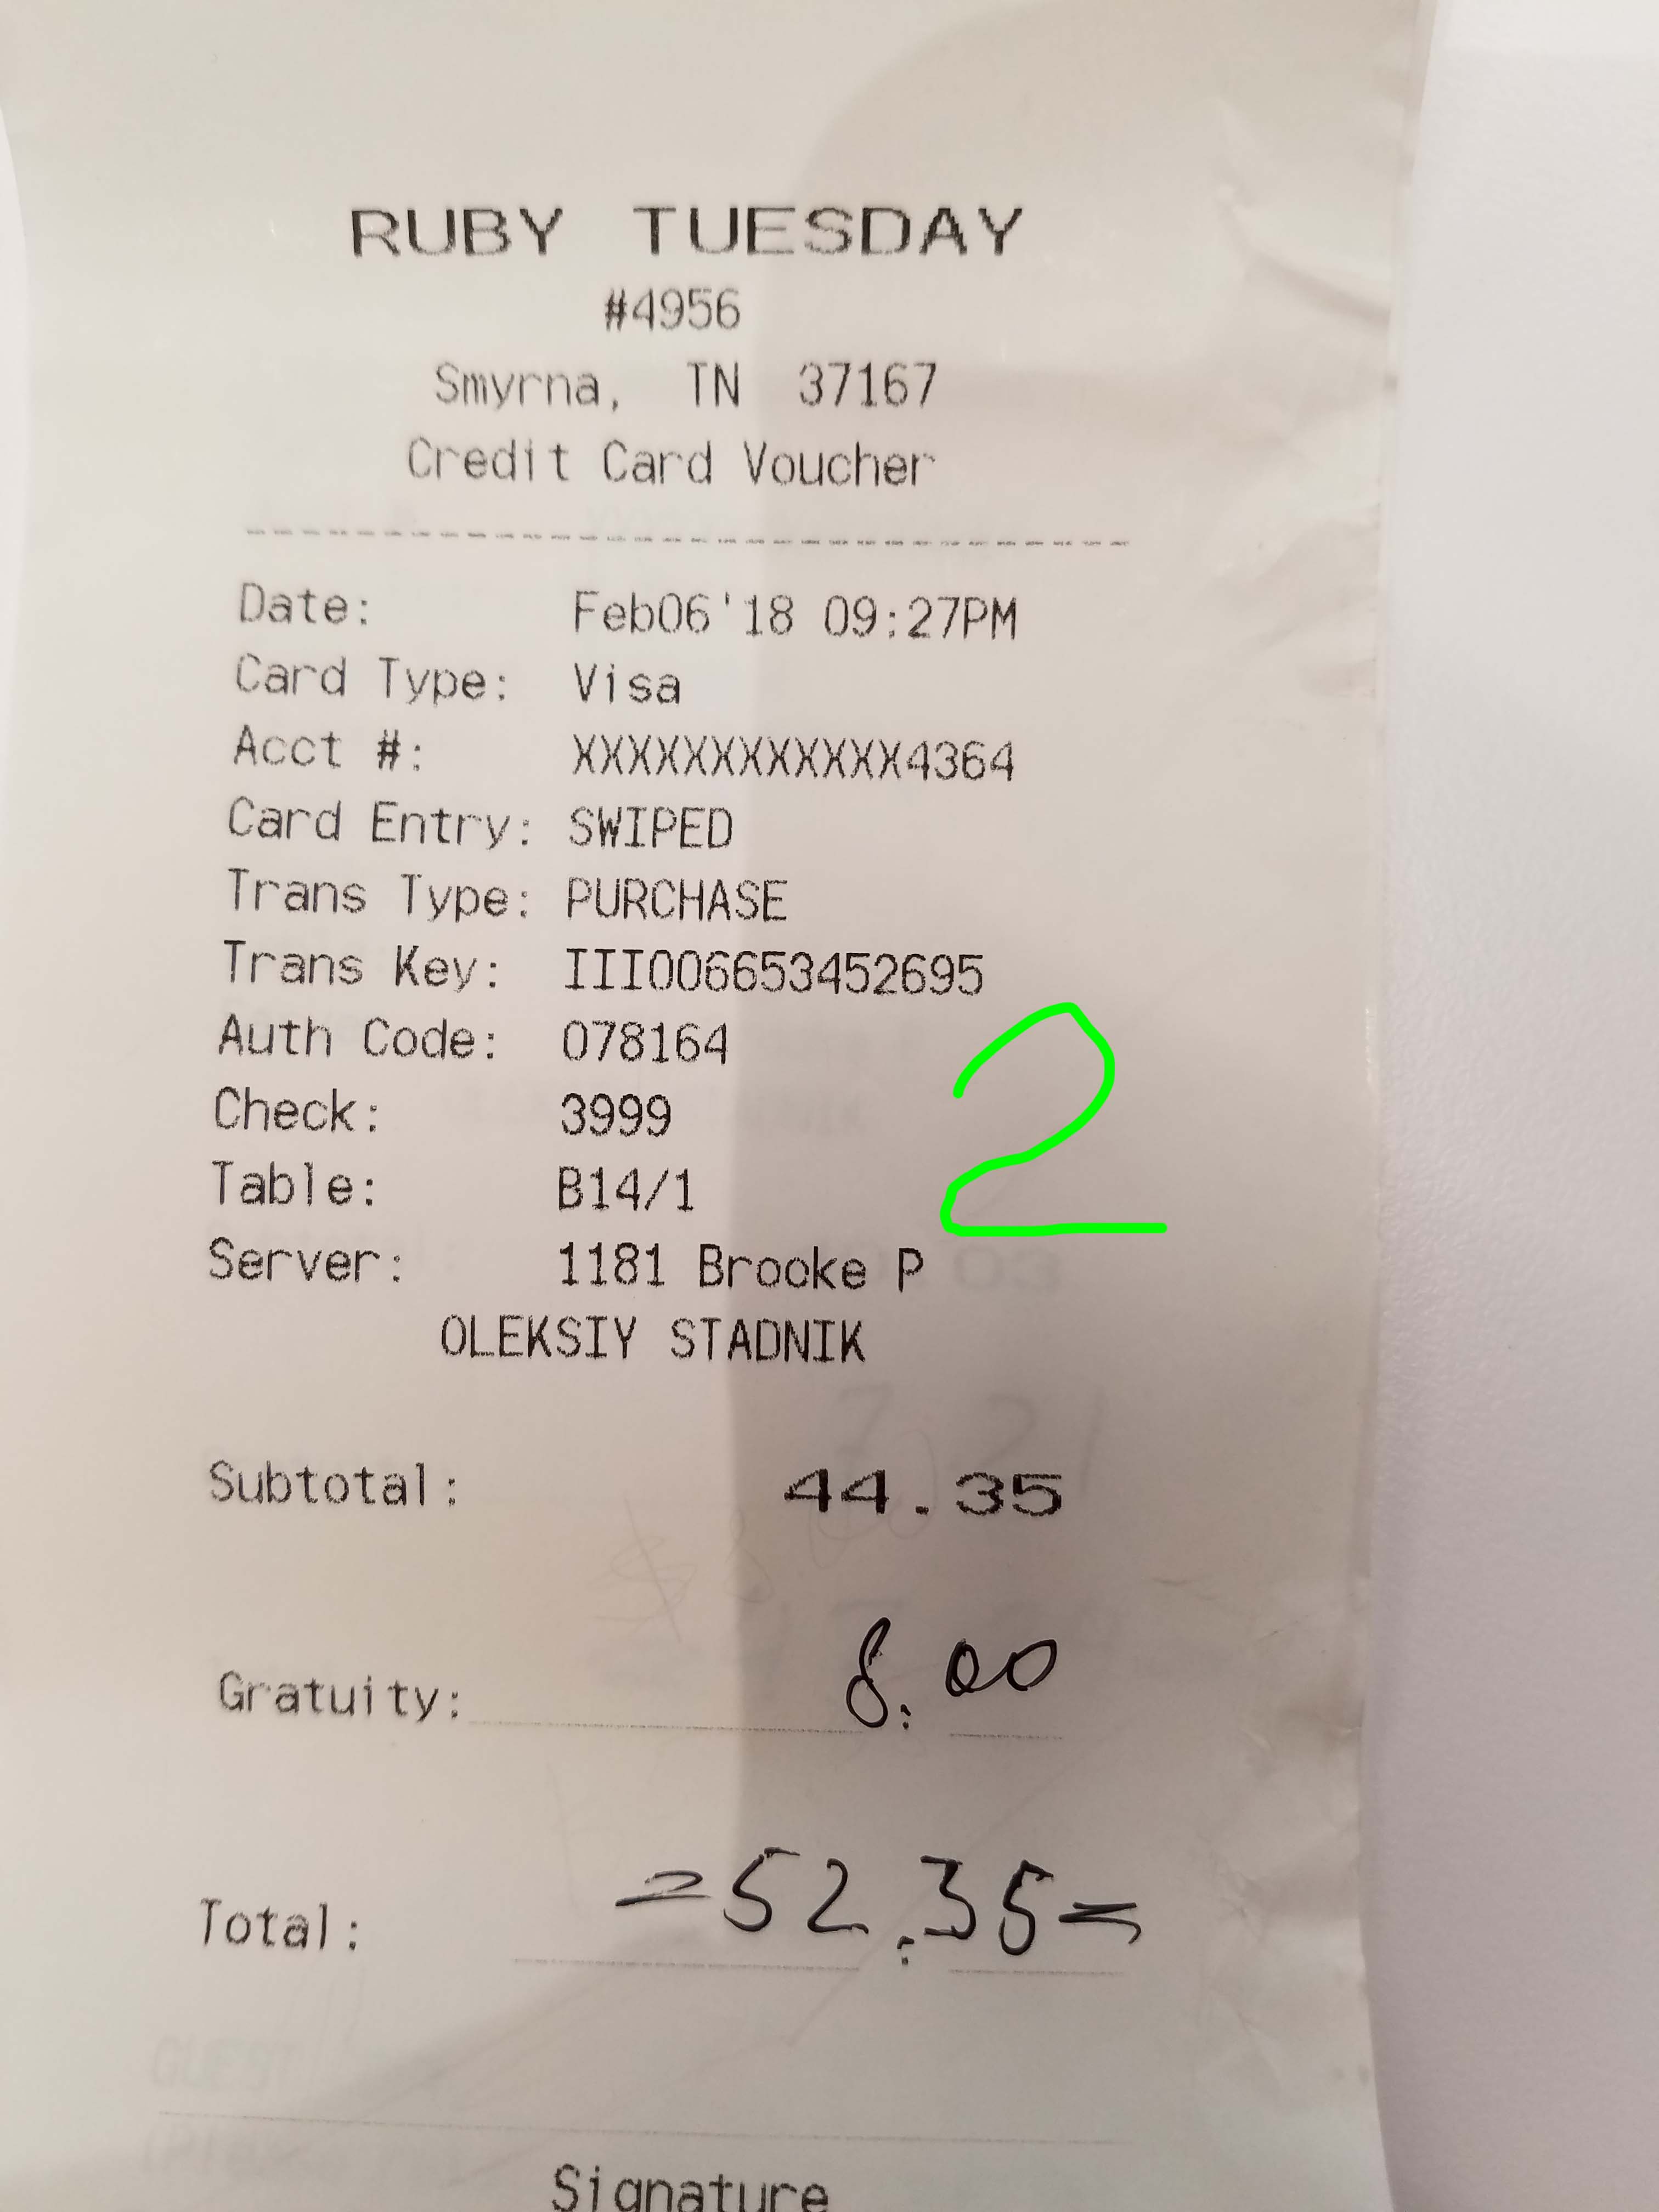 RUBY TUESDAY
#4956
Smyrna, TN 37167
Credit Card Voucher
Date: Feb06'18 09:27PM
Card Type: Visa
Acct #: XXXXXXXXXXXX4364
Card Entry: SWIPED
Trans Type: PURCHASE
Trans Key: III006653452695
Auth Code: 078164
Check: 3999
2
Table: B14/1
Server: 1181 Brooke P
OLEKSIY STADNIK
Subtotal: 44.35
Gratuity: 8.00
Total: =52.35=
GUEST
Signature